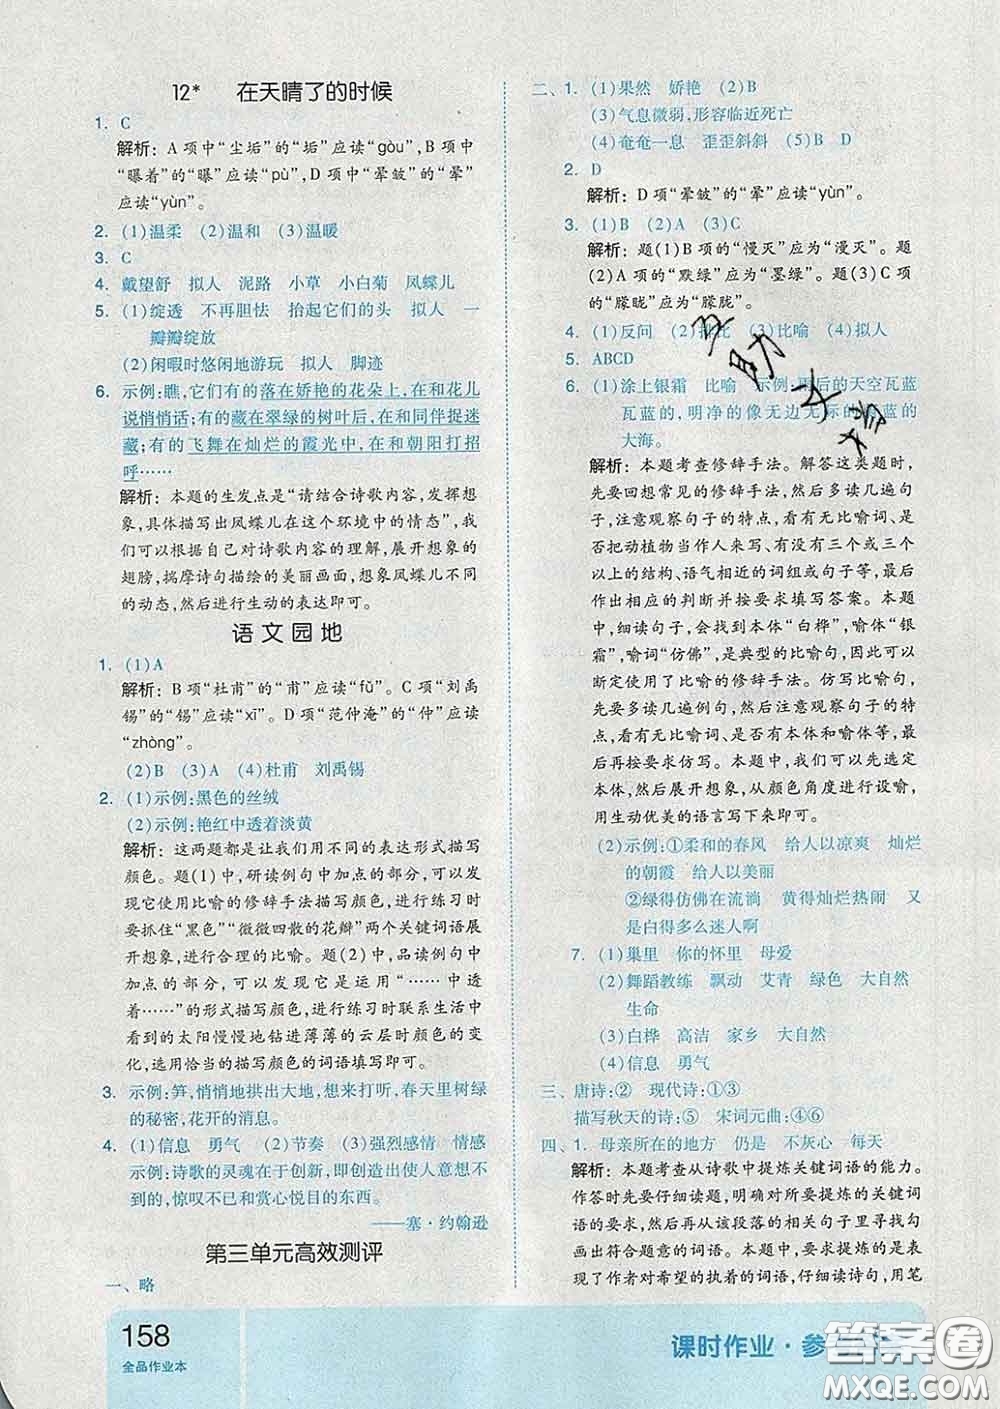 12*　在天晴了的时候
1. C
解析：A 项中“尘垢”的“垢”应读“gòu”，B 项
中“曝着”的“曝”应读“pù”，D 项中“晕皴”的“晕”
应读“yùn”。
2. (1)温柔　(2)温和　(3)温暖
3. C
4. 戴望舒　拟人　泥路　小草　小白菊　凤蝶儿
5. (1)绽透　不再胆怯　抬起它们的头　拟人　一
瓣瓣绽放
(2)闲暇时悠闲地游玩　拟人　脚迹
6. 示例：瞧，它们有的落在娇艳的花朵上，在和花儿
说悄悄话；有的藏在翠绿的树叶后，在和同伴捉迷
藏；有的飞舞在灿烂的霞光中，在和朝阳打招
呼……
解析：本题的生发点是“请结合诗歌内容，发挥想
象，具体描写出凤蝶儿在这个环境中的情态”，我
们可以根据自己对诗歌内容的理解，展开想象的
翅膀，揣摩诗句描绘的美丽画面，想象凤蝶儿不同
的动态，然后进行生动的表达即可。
语文园地
1. (1)A
解析：B 项“杜甫”的“甫”应读“fǔ”。C 项“刘禹
锡”的“锡”应读“xī”。D 项“范仲淹”的“仲”应读
“zhòng”。
(2)B　(3)A　(4)杜甫　刘禹锡
2. (1)示例：黑色的丝绒
(2)示例：艳红中透着淡黄
解析：这两题都是让我们用不同的表达形式描写
颜色。题(1)中，研读例句中加点的部分，可以发
现它是运用比喻的修辞手法描写颜色，进行练习时
要抓住“黑色”“微微四散的花瓣”两个关键词语展
开想象，进行合理的比喻。题(2)中，品读例句中
加点的部分，可以发现它是运用“……中透
着……”的形式描写颜色，进行练习时联系生活中
看到的太阳慢慢地钻进薄薄的云层时颜色的变
化，选用恰当的描写颜色的词语填写即可。
3. 示例：笋，悄悄地拱出大地，想来打听，春天里树绿
的秘密，花开的消息。
4. (1)信息　勇气　(2)节奏　(3)强烈感情　情感
示例：诗歌的灵魂在于创新，即创造出使人意想不
到的，惊叹不已和赏心悦目的东西。
——塞·约翰逊
第三单元高效测评
一、略
二、1. (1)果然　娇艳　(2)B
(3)气息微弱，形容临近死亡
(4)奄奄一息　歪歪斜斜　(5)B　D
2. D
解析：D 项“晕皴”的“晕”应读“yùn”。
3. (1)B　(2)A　(3)C
解析：题(1)B 项的“慢灭”应为“漫灭”。题
(2)A 项的“默绿”应为“墨绿”。题(3)C 项
的“朦眬”应为“朦胧”。
4. (1)反问　(2)排比　(3)比喻　(4)拟人
5. ABCD
6. (1)涂上银霜　比喻　示例：雨后的天空瓦蓝
瓦蓝的，明净的像无边无际的蔚蓝的
大海。
解析：本题考查修辞手法。解答这类题时，
先要回想常见的修辞手法，然后多读几遍句
子，注意观察句子的特点，看有无比喻词、是
否把动植物当作人来写、有无三个或三个
以上的结构、语气相近的词组或句子等，最后
作出相应的判断并按要求填写答案。本题
中，细读句子，会找到本体“白桦”，喻体“银
霜”，喻词“仿佛”，是典型的比喻句，因此可以
断定使用了比喻的修辞手法。仿写比喻句，
先要多读几遍例句，然后注意观察句子的特
点，看有无比喻词、是否有本体和喻体等，最
后再按要求仿写。本题中，我们可以先选定
本体，然后展开想象，从颜色角度进行设喻，
用生动优美的语言写下来即可。
(2)示例：①柔和的春风　给人以凉爽　灿烂
的朝霞　给人以美丽
②绿得仿佛在流淌　黄得灿烂热闹　又
是白得多么迷人啊
7. (1)巢里　你的怀里　母爱
(2)舞蹈教练　飘动　艾青　绿色　大自然
生命
(3)白桦　高洁　家乡　大自然
(4)信息　勇气
三、唐诗：②　现代诗：①③
描写秋天的诗：⑤　宋词元曲：④⑥
四、1. 母亲所在的地方　仍是　不灰心　每天
解析：本题考查从诗歌中提炼关键词语的能力。
作答时先要仔细读题，明确对所要提炼的关键词
语的要求，然后从该段落的相关句子里寻找并勾
画出符合题意的词语。本题中，要求提炼的是表
现了作者对希望的执着的词语，仔细读诗句，用笔
158
全品作业本
课时作业·参
答案圈
MXQE.COM